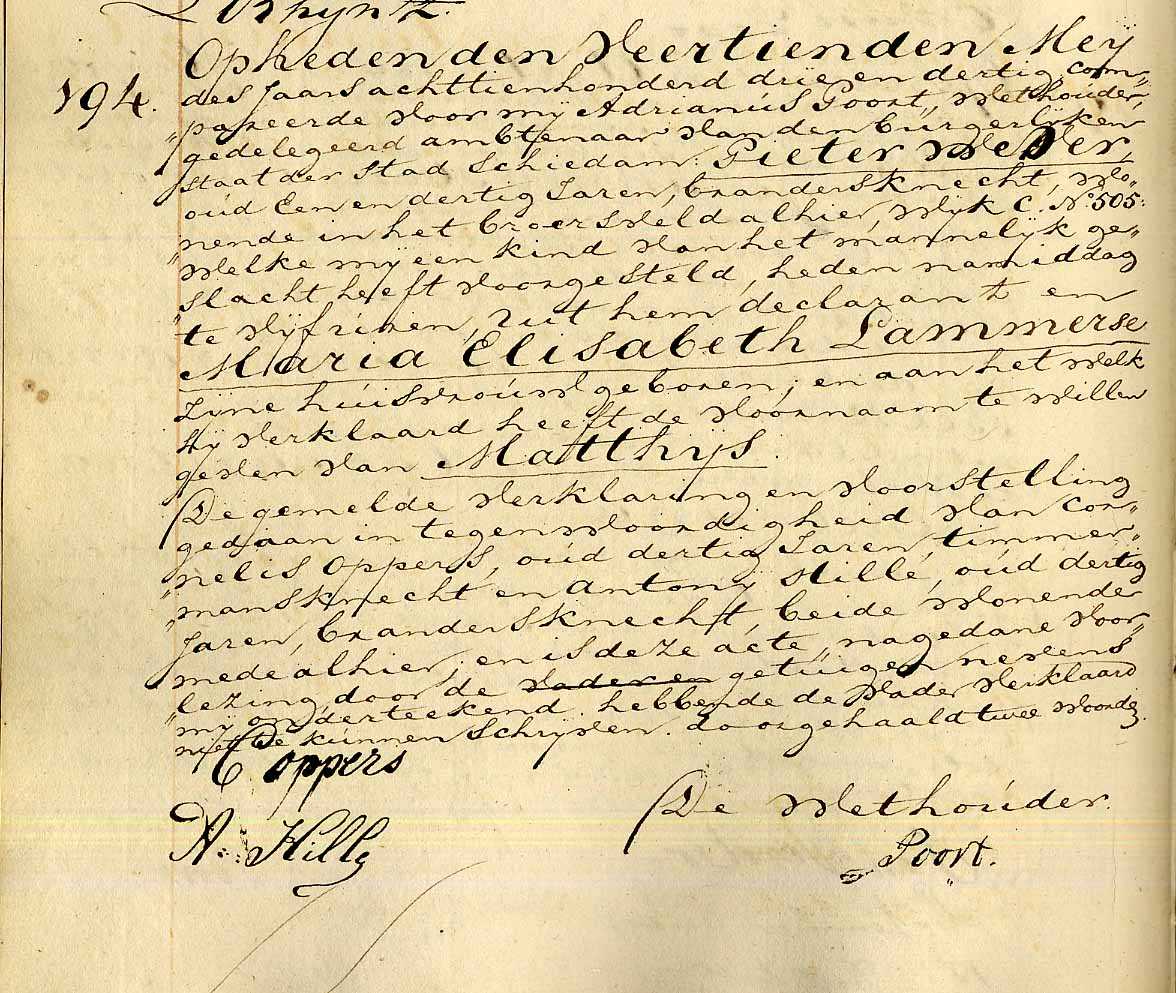 Opheden den Veertienden Meÿ
194. des Jaars achttienhonderd drie en dertig, com„
„pareerde voor mÿ Adrianús Poort, Wethouder,
gedelegeerd ambtenaar van den búrgerlÿken
staat der stad Schiedam: Pieter Weber,
oúd Een en dertig Jaren, brandersknecht, wo„
„nende in het broersveld alhier, Wÿk C. No 505:
Welke mÿ een kind van het mannelÿk ge„
„slacht heeft voorgesteld, heden namiddag
te vÿf úren, úit hem declarant en
Maria Elisabeth Lammerse
zÿne húisvroúw geboren; en aan het welk
hÿ verklaard heeft de voornaam te willen
geven van Matthÿs.
De gemelde verklaring en voorstelling
gedaan in tegenwoordigheid van Cor„
„nelis Oppers, oúd dertig Jaren, timmer„
„mansknecht en Antony Hille, oúd dertig
Jaren, brandersknecht, beide wonende
mede alhier; en is deze acte, na gedane voor„
„lezing, door de vader en getúigen nevens
mÿ onderteekend. hebbende de vader verklaard
niet te kúnnen schrÿven. doorgehaald twee woorden.
C oppers
De Wethoúder.
A. Hille
Poort.